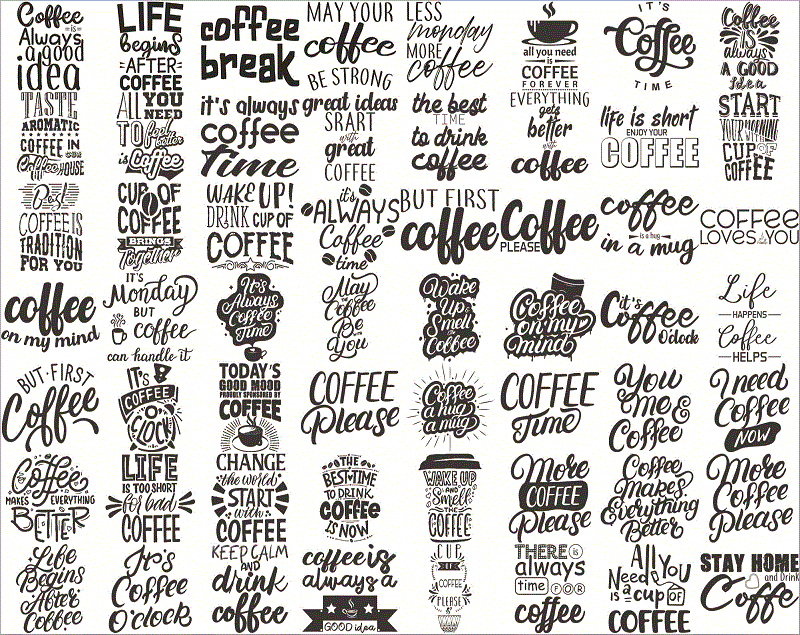 Coffee
is
Always
a good
idea
LIFE
begins
AFTER
COFFEE
coffee
break
MAY YOUR
coffee
BE STRONG
LESS
monday
MORE
coffee
all you need
is
COFFEE
FOREVER
IT'S
Coffee
TIME
Coffee
IS
always
A GOOD
Idea
TASTE
AROMATIC
COFFEE IN
OUR
Coffee HOUSE
ALL YOU
NEED
TO feel
better
is Coffee
it's always
coffee
Time
great ideas
SRART
with
great
COFFEE
the best
TIME
to drink
coffee
EVERYTHING
gets
better
with
coffee
life is short
ENJOY YOUR
COFFEE
START
YOUR WITH
CUP OF
COFFEE
Best
COFFEE IS
TRADITION
FOR YOU
CUP OF
COFFEE
BRINGS
Together
WAKE UP!
DRINK CUP OF
COFFEE
it's
ALWAYS
Coffee
time
BUT FIRST
coffee
Coffee
PLEASE
coffee
is a hug
in a mug
COFFEE
LOVES YOU
coffee
on my mind
IT'S
Monday
BUT
coffee
can handle it
It's
Always
Coffee
Time
May
the
Coffee
Be
with
You
Wake
Up &
Smell
the
Coffee
Coffee
on my
mind
it's
Coffee
O'clock
Life
HAPPENS
Coffee
HELPS
BUT FIRST
Coffee
IT'S
COFFEE
O'CLOCK
TODAY'S
GOOD MOOD
PROUDLY SPONSORED BY
COFFEE
COFFEE
Please
Coffee
a hug
in
a mug
COFFEE
Time
You
Me &
Coffee
I need
Coffee
NOW
Coffee
MAKES EVERYTHING
BETTER
LIFE
IS TOO SHORT
for bad
COFFEE
CHANGE
the world
START
with
COFFEE
THE
BEST TIME
TO DRINK
coffee
IS NOW
WAKE UP
AND
Smell
THE
COFFEE
More
COFFEE
Please
Coffee
Makes
Everything
Better
More
Coffee
Please
Life
Begins
After
Coffee
It's
Coffee
O'clock
KEEP CALM
AND
drink
coffee
coffee is
always a
GOOD idea
CUP
OF
COFFEE
PLEASE
THERE is
always
time FOR
coffee
All You
Need
is a cup OF
COFFEE
STAY HOME
and Drink
Coffe